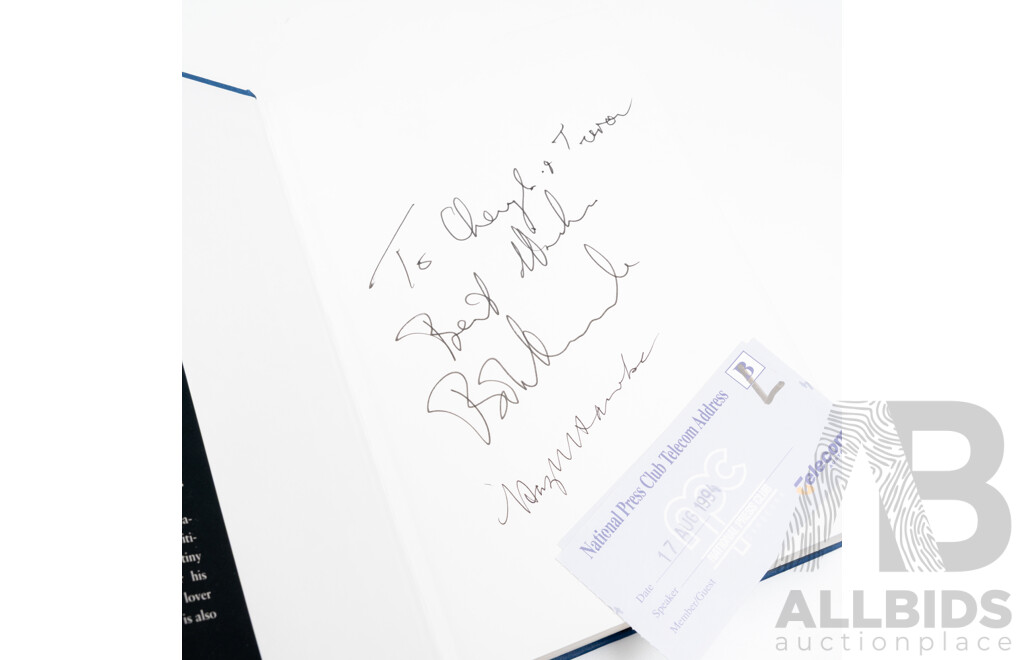 To Cheryl & Trevor
Best Wishes
Bob Hawke
Hazel Hawke
National Press Club Telecom Address
B
L
17 AUG 1994
npc
NATIONAL PRESS CLUB
Date
Speaker
Member/Guest
Telecom
a-
iti-
tiny
his
lover
is also
AB
ALLBIDS
auctionplace